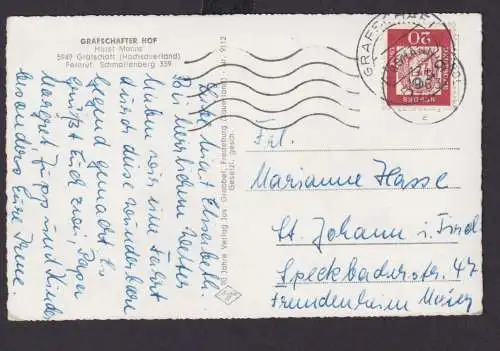 GRAFSCHAFTER HOF
Horst Manns
5949 Grafschaft (Hochsauerland)
Fernruf: Schmallenberg 359
Liebe Tante Elisabeth.
Bei herrlichem Wetter
haben wir eine Fahrt
durch diese wunderbare
Gegend gemacht. Es
grüßt Euch zwei,
Margret, Jupp und Kinder
besonders Eure Irene.
50 Jahre Verlag Jos. Grobbel, Fredeburg (Sauerland) · Nr. 9112
Gesetzl. gesch.
GRAFSCHAFT
20
Frl.
Marianne Hasse
St. Johann i. Tirol
Speckbacherstr. 47
Fremdenheim